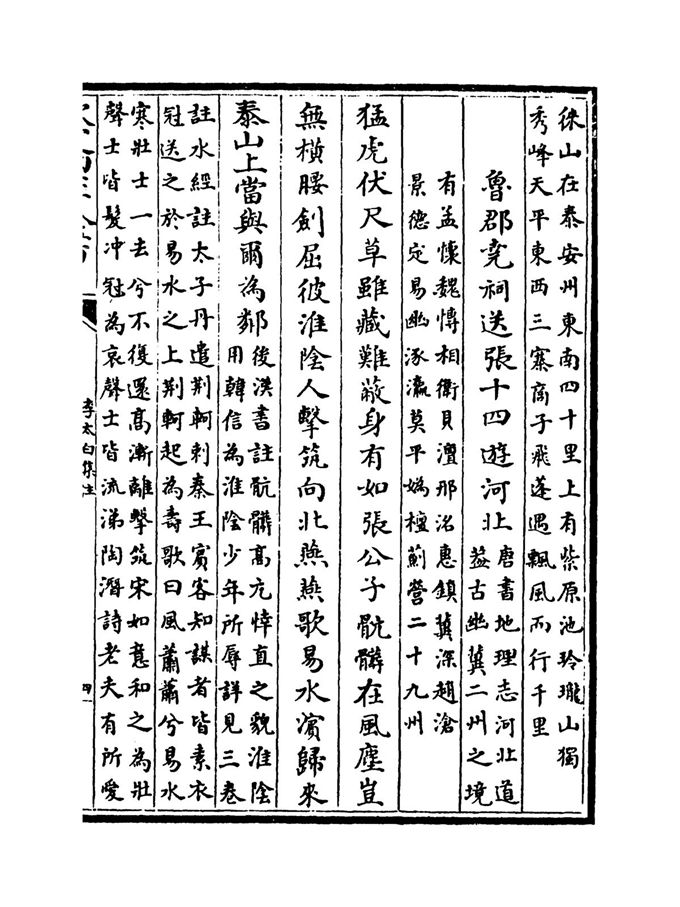 徠山在泰安州東南四十里上有紫原池玲瓏山獨
秀峰天平東西三寨商子飛蓬遇飄風而行千里
魯郡堯祠送張十四遊河北
唐書地理志河北道
蓋古幽冀二州之境
有孟懷魏博相衛貝澶邢洺惠鎮冀深趙滄
景德定易幽涿瀛莫平媯檀薊營二十九州
猛虎伏尺草雖藏難蔽身有如張公子骯髒在風塵豈
無横腰劍屈彼淮陰人擊筑向北燕燕歌易水濱歸來
泰山上當與爾為鄰
後漢書註骯髒高亢悻直之貌淮陰
用韓信為淮陰少年所辱詳見三巻
註水經註太子丹遣荆軻刺秦王賓客知謀者皆素衣
冠送之於易水之上荆軻起為壽歌曰風蕭蕭兮易水
寒壯士一去兮不復還髙漸離擊筑宋如意和之為壯
聲士皆髪冲冠為哀聲士皆流涕陶潛詩老夫有所愛
李太白集注